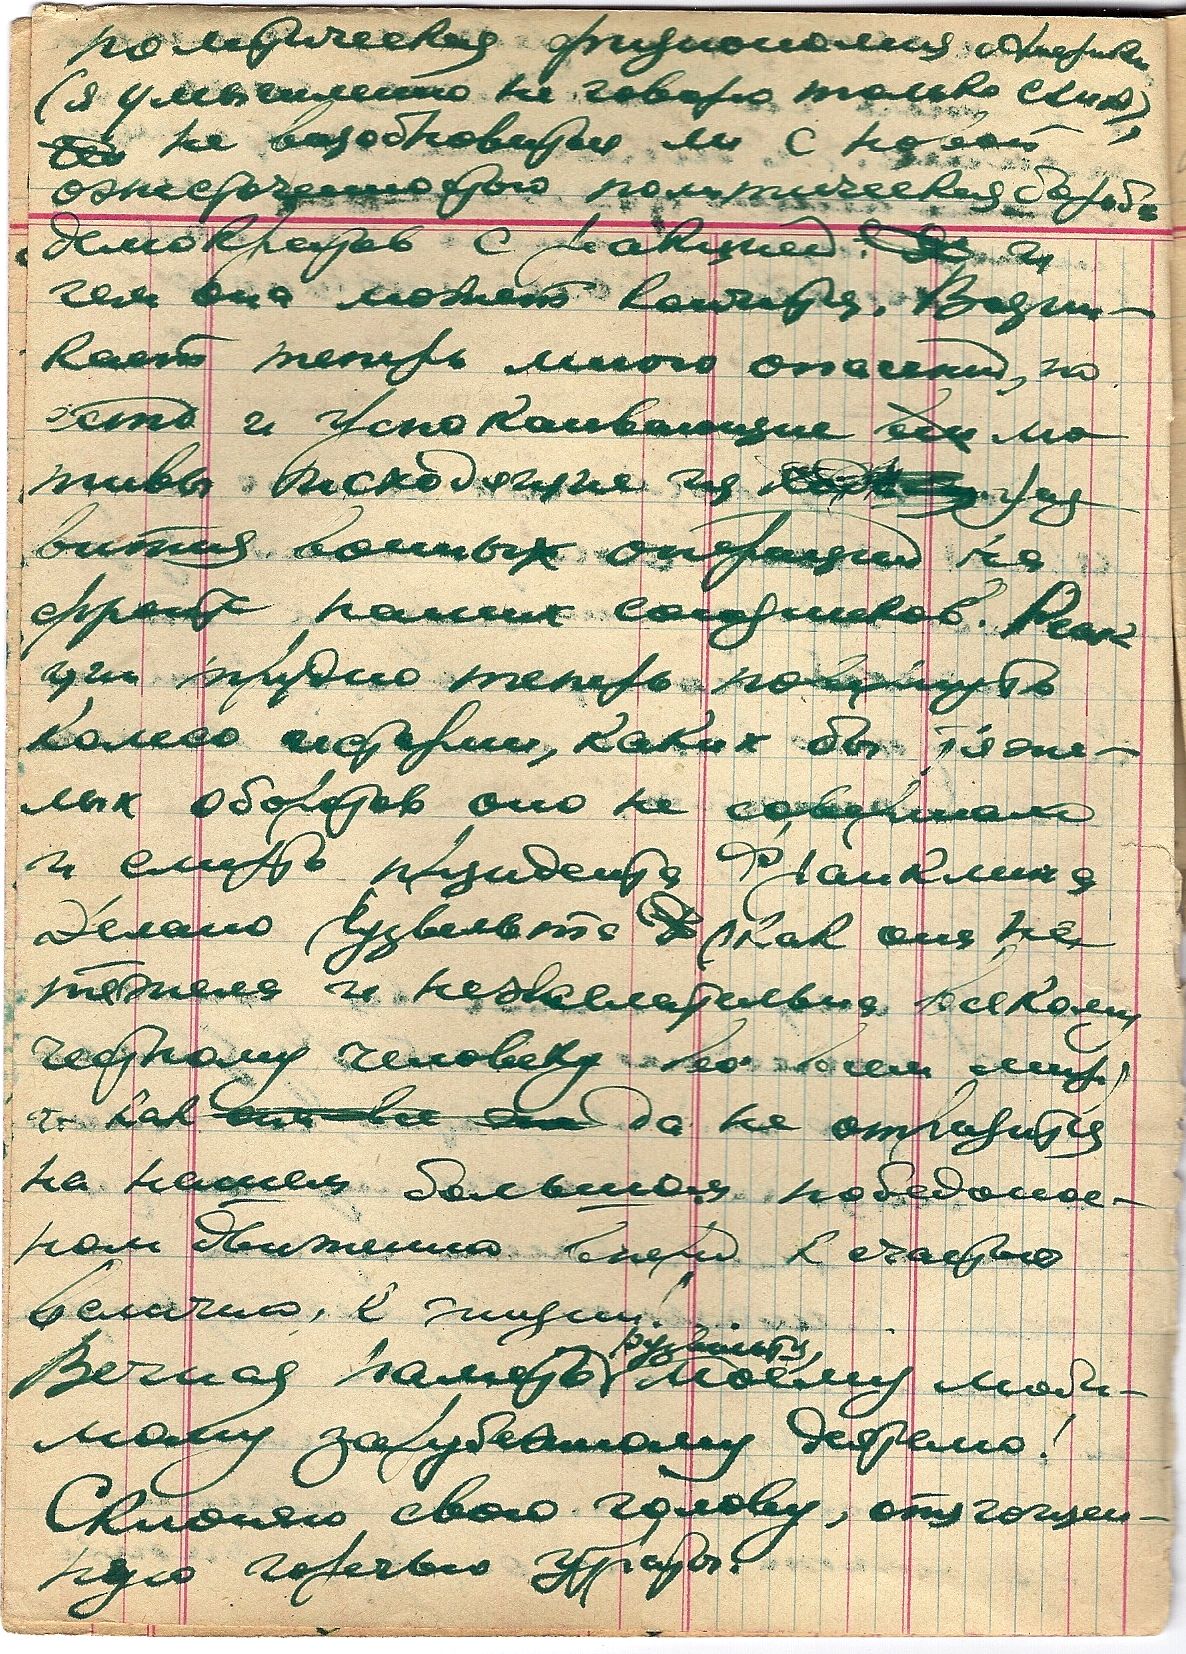 политическая физиономия Америки
(я умышленно не говорю только США),
не возобновится ли с новой
ожесточенностью политическая борьба
демократов с реакцией и
чем она может кончиться. Возни-
кает теперь много опасений, но
есть и успокаивающие мо
тивы исходящие из раз
вития военных операций на
фронте наших союзников. Реак
ции трудно теперь повернуть
колесо истории, каких бы тяже-
лых оборотов оно не совершало
и смерть президента Франклина
Делано Рузвельта, как она не
тяжела и нежелательна всякому
честному человеку во всем мире,
ни как да не отразится
на нашем большом победонос-
ном движении вперед к счастью
величию, к жизни!
Вечная память Рузвельту, моему люби-
мому зарубежному деятелю!
Склоняю свою голову, отягощен-
ную горечью утраты.